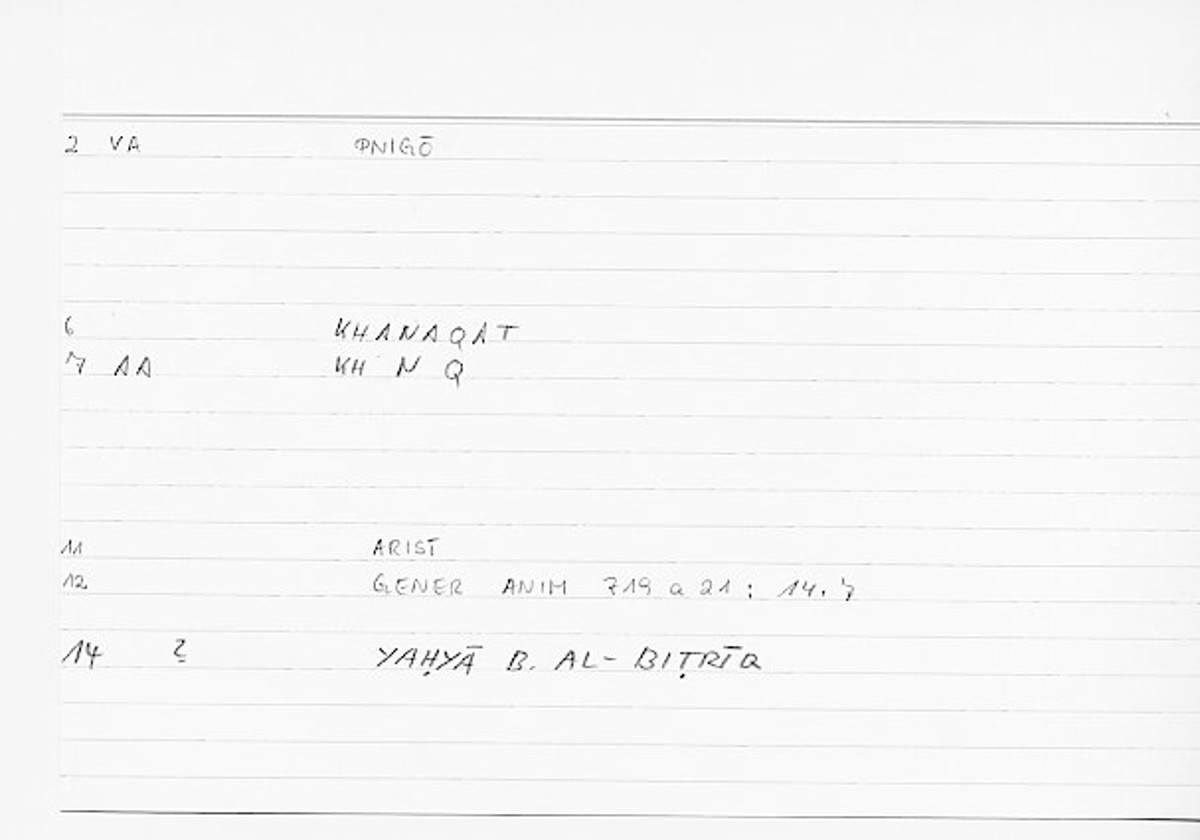 2 VA PNIGŌ
6 KHANAQAT
7 AA KH N Q
11 ARIST
12 GENER ANIM 719 a 21 : 14.7
14 ? YAḤYĀ B. AL-BIṬRĪQ